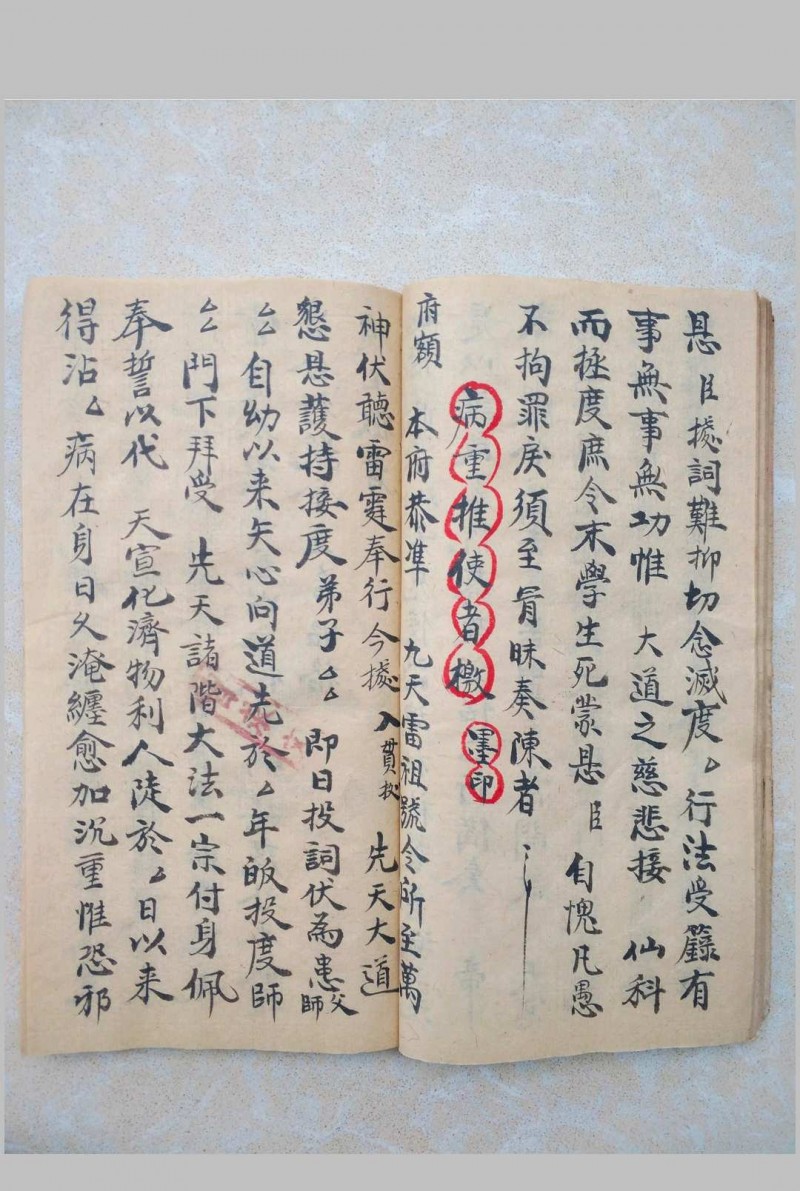 恳 臣 據詞難抑切念滅度厶 行法受籙有
事無事無功惟 大道之慈悲接 仙科
而拯度庶令末學生死蒙恳 臣 自愧凡愚
不拘罪戾須至冐昧奏陳者
病重推使者檄 墨印
府額 本府恭準 九天雷祖號令所至萬
神伏聽雷霆奉行今據 入貫执 先天大道
懇恳護持接度 弟子厶厶 即日投詞伏為患師父
厶自幼以来矢心向道尤於厶年皈投度師
厶門下拜受 先天諸階大法一宗付身佩
奉誓以代 天宣化濟物利人陡於厶日以来
得沾厶病在身日久淹纏愈加沉重惟恐邪